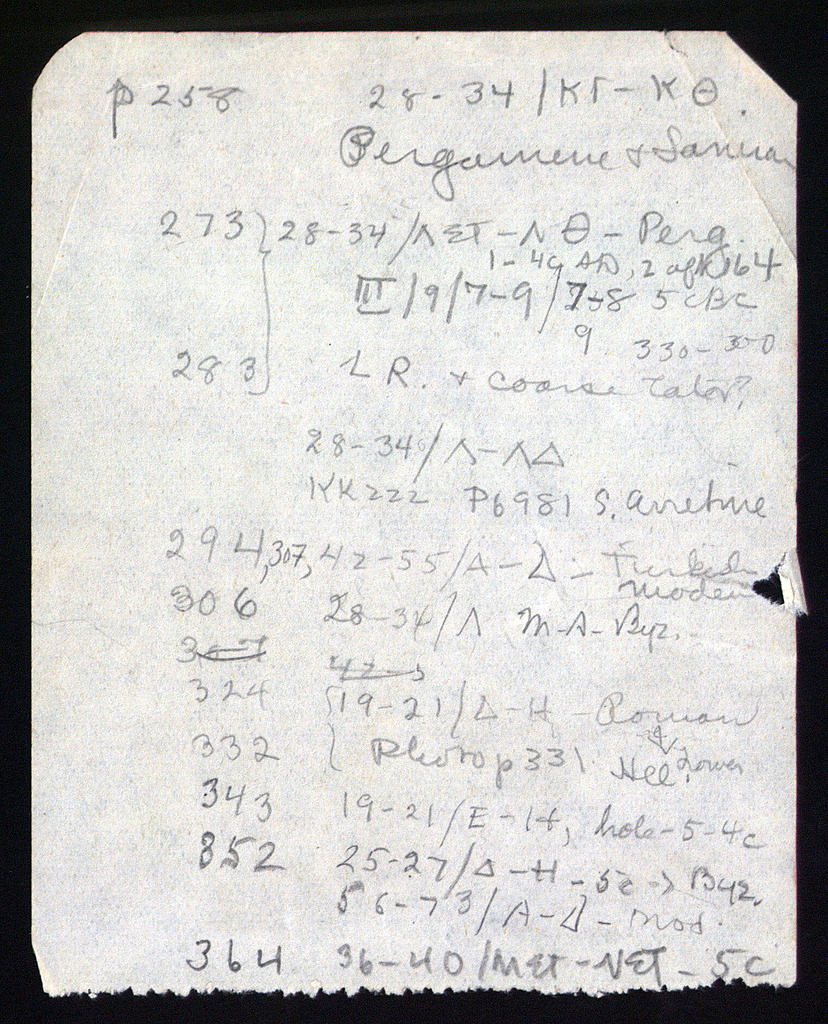 p 258 28-34/ΚΓ-ΚΘ
Pergamene + Samian
273 28-34/ΛΣΤ-ΛΘ-Perg.
1-4c AD, 2 of K164
III/9/7-9/7-8 5cBC
9 330-300
283 LR. + coarse later?
28-34/Λ-ΛΔ
KK222 P6981 S. Arretine
294,307, 42-55/Α-Δ- Turkish
modern
306 28-34/Λ M-A-Byz.
307 42-5
324 19-21/Δ-Η-Roman
332 Photo p331. Hell. lower
343 19-21/Ε-Η, hole-5-4c
352 25-27/Δ-Η-5c->Byz.
56-73/Α-Δ-mod.
364 36-40/ΜΣΤ-ΝΣΤ-5c